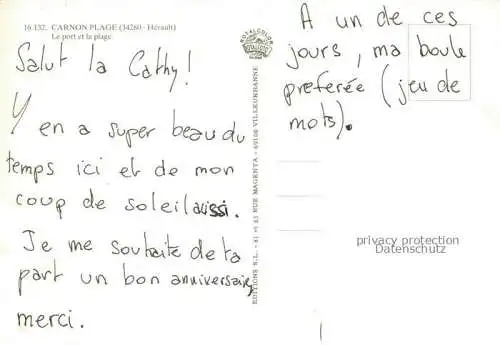 16.132. CARNON PLAGE (34280 - Hérault)
Le port et la plage
Salut la Cathy!
Y en a super beau du
temps ici et de mon
coup de soleil aussi.
Je me souhaite de ta
part un bon anniversaire,
merci.
ROYALCOLOR
EDITIONS S.L. - 41 et 43 RUE MAGENTA - 69100 VILLEURBANNE
A un de ces
jours, ma boule
preferée (jeu de
mots).
privacy protection
Datenschutz